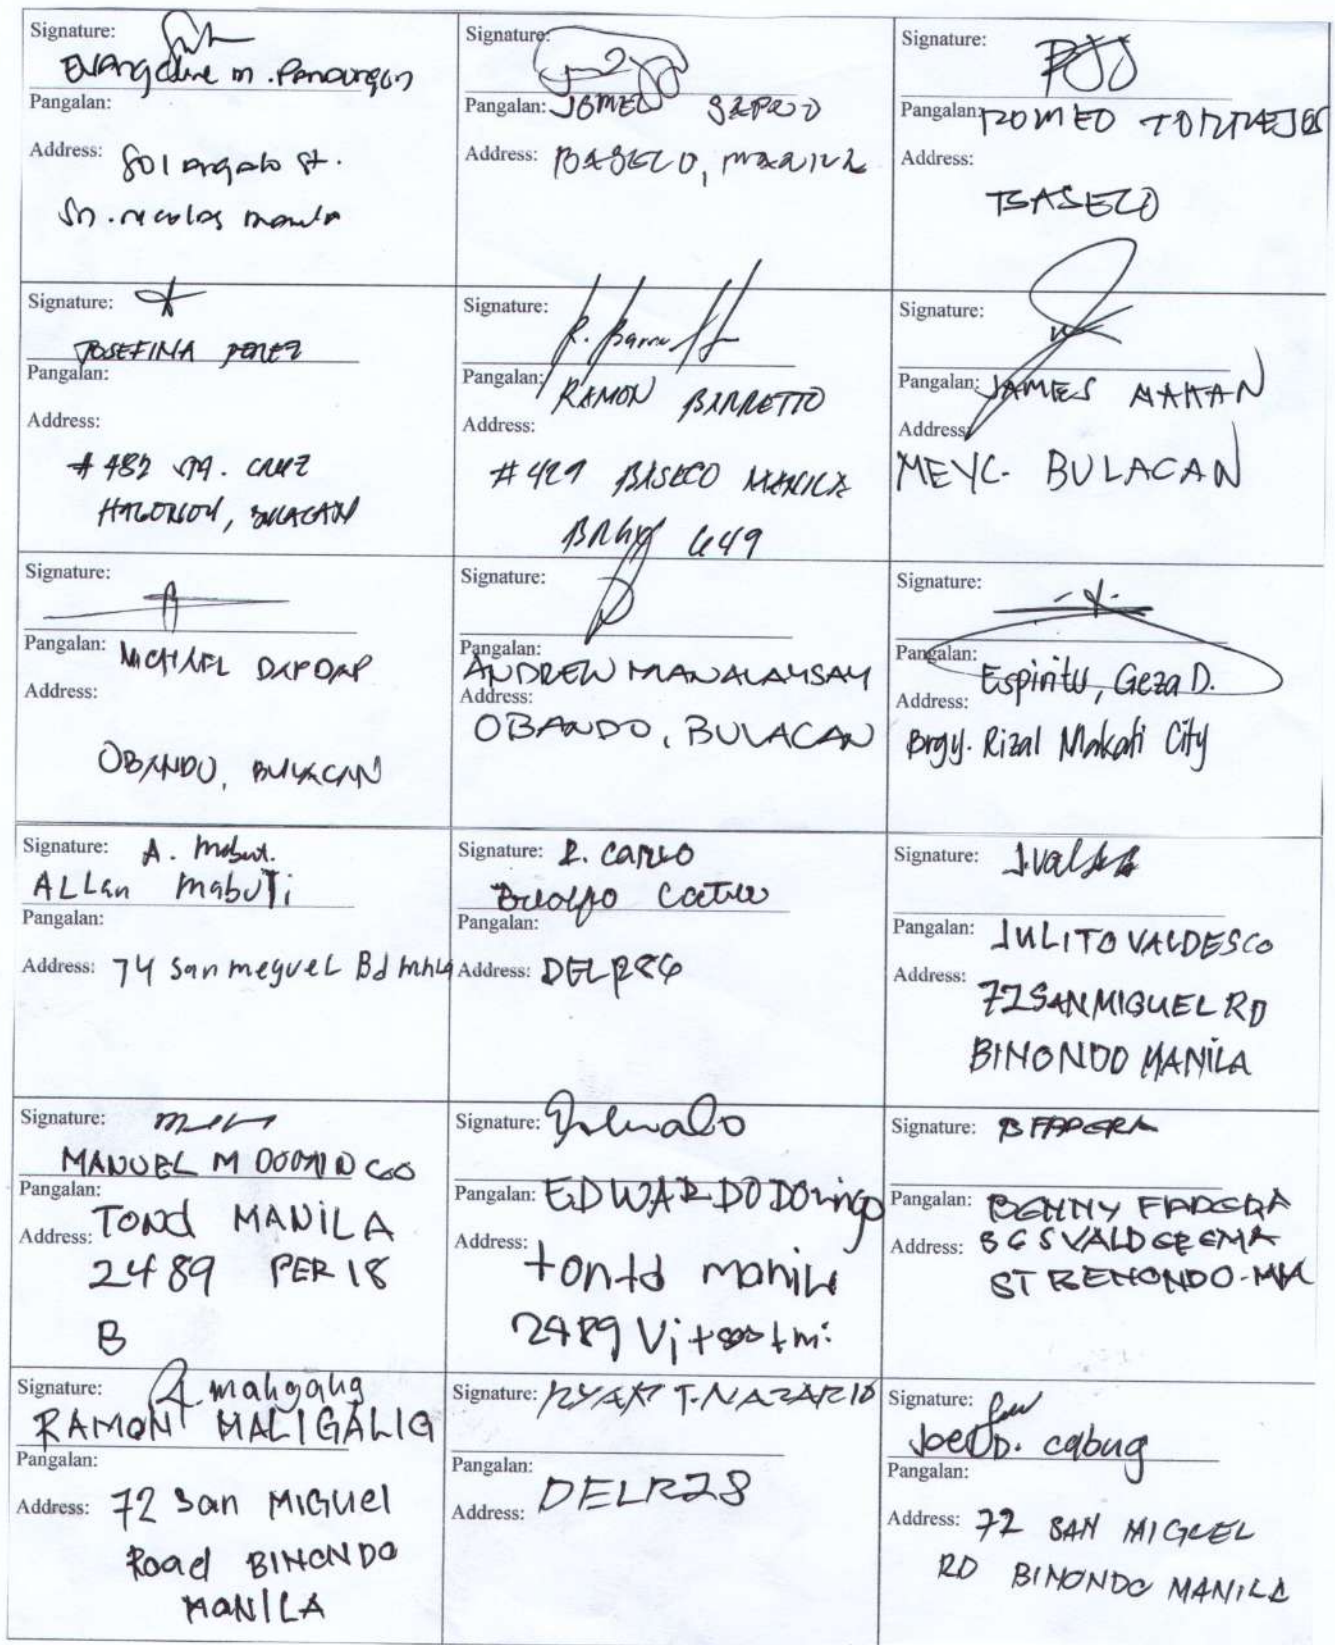 Signature:
Evangeline m. Panaurgan
Pangalan:
Address: 801 Angalo St.
Sn. nicolas manila
Signature:
Pangalan: JOMEL
Address: BASECO, MANILA
Signature:
Pangalan: ROMEO TORRAJOS
Address:
BASECO
Signature:
JOSEFINA PEREZ
Pangalan:
Address:
# 482 STA. CRUZ
HAGONOY, BULACAN
Signature: R. Barretto
Pangalan: RAMON BARRETTO
Address:
# 429 BASECO MANILA
BRGY 649
Signature:
Pangalan: JAMES MAHAN
Address:
MEYC. BULACAN
Signature:
Pangalan: MICHAEL DAPDAP
Address:
OBANDO, BULACAN
Signature:
Pangalan:
ANDREW MANALAYSAY
Address:
OBANDO, BULACAN
Signature:
Pangalan: Espiritu, Geza D.
Address:
Brgy. Rizal Makati City
Signature: A. Mabut.
ALLan mabuTi
Pangalan:
Address: 74 San meguel Bd mnla
Signature: R. CARLO
Pangalan:
Address:
Signature: J.Valdes
Pangalan: JULITO VALDESCO
Address: 72 SAN MIGUEL RD
BINONDO MANILA
Signature:
MANUEL M DOMINGO
Pangalan:
Address: TOND MANILA
2489 PER 18
B
Signature:
Pangalan: EDWARDO Domingo
Address:
tontd manila
2489
Signature: B FADERA
Pangalan: BENNY FADERA
Address: 865 VALDEREMA
ST BENONDO-MLA
Signature:
RAMON MALIGALIG
Pangalan:
Address: 72 San MIGUel
Road BINONDO
MANILA
Signature: RYAN T. NAZARIO
Pangalan:
Address: DELR28
Signature:
Joel D. cabug
Pangalan:
Address: 72 SAN MIGUEL
RD BINONDO MANILA